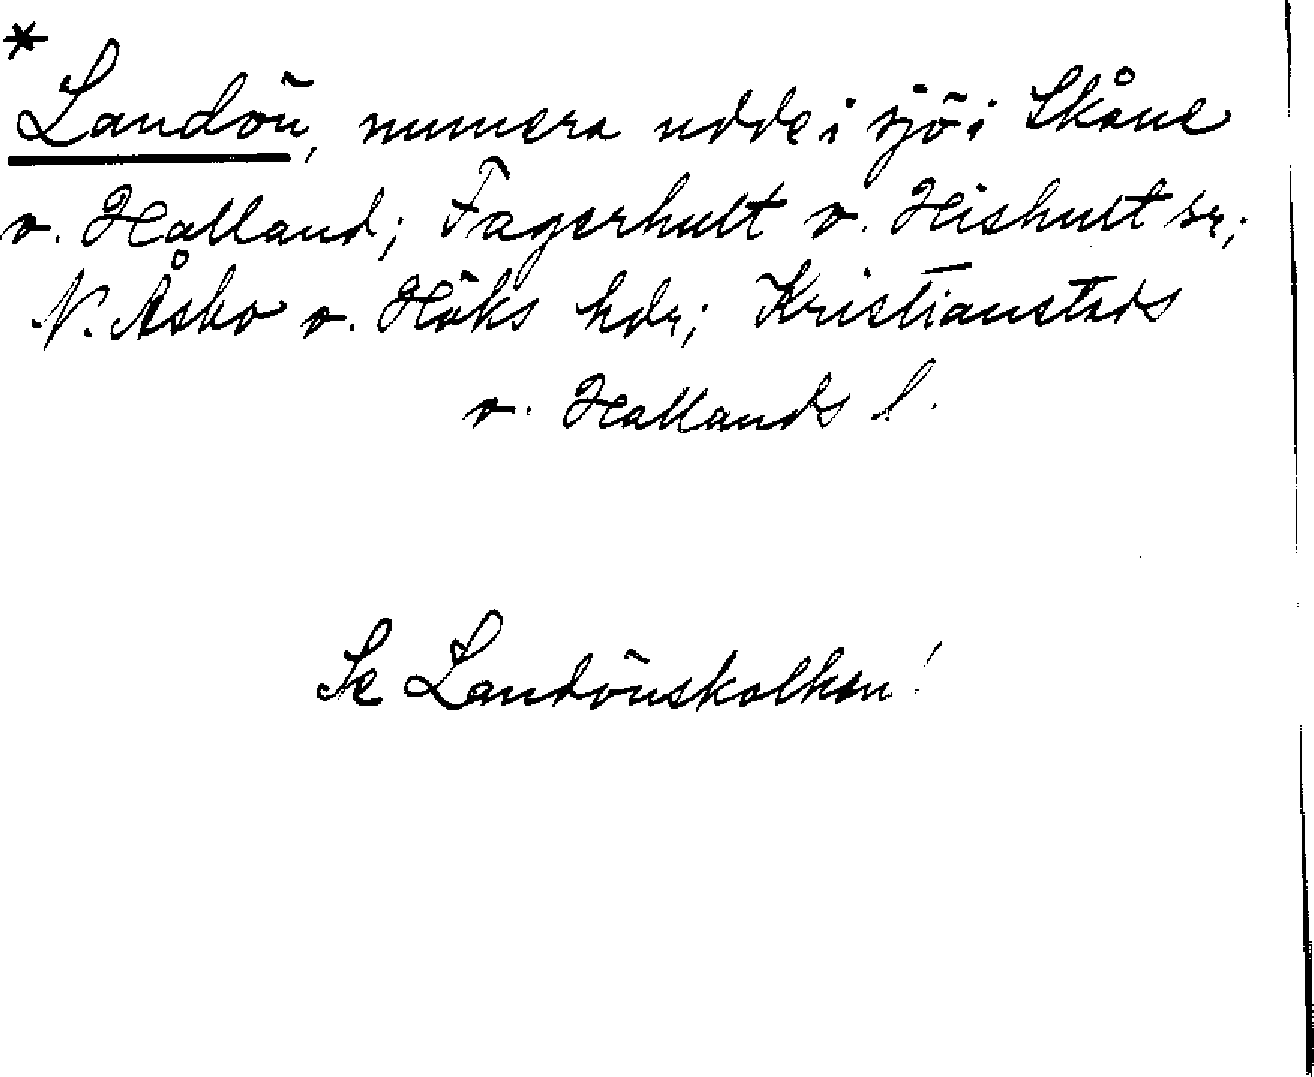 *
Landön, numera udde i sjö i Skåne
o. Halland; Fagerhult o. Hishult sr;
N. Åsbo o. Höks hdr; Kristianstads
o. Hallands l.
Se Landönskolken!